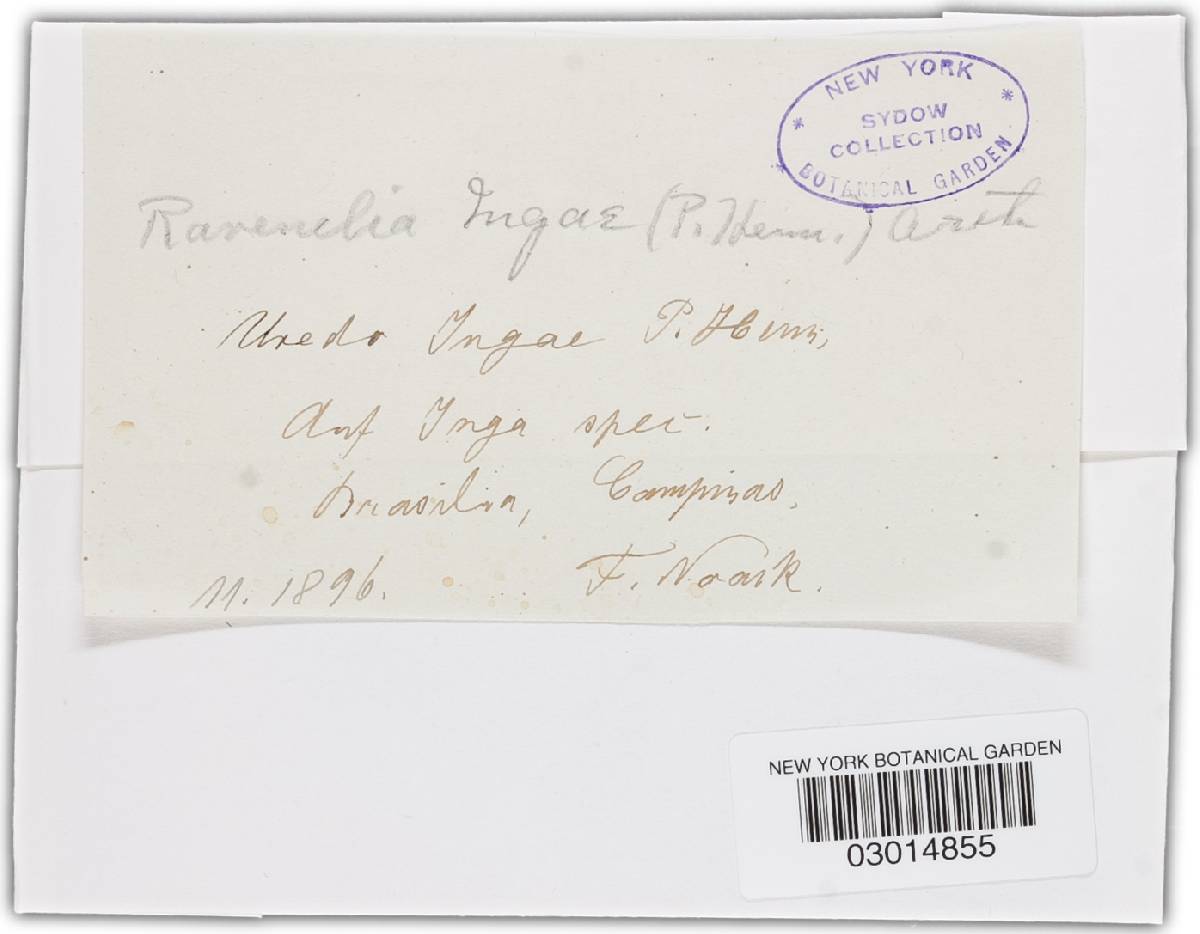 NEW YORK
SYDOW
COLLECTION
BOTANICAL GARDEN
Ravenelia Ingae (P. Henn.) Arth
Uredo Ingae P. Henn,
Auf Inga spec.
Brasilia, Campinas,
11. 1896. F. Noack.
NEW YORK BOTANICAL GARDEN
03014855